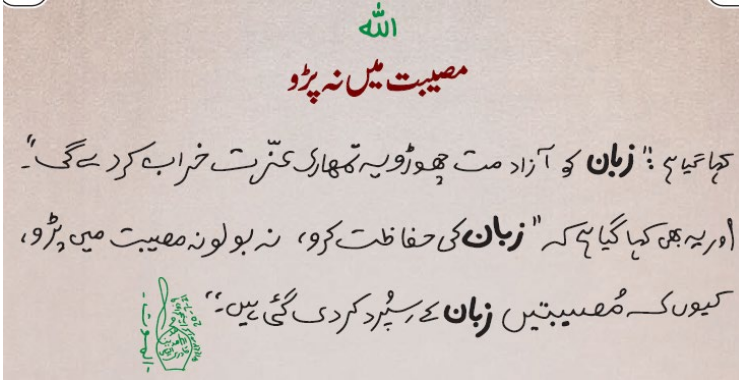 الله
مصیبت میں نہ پڑو
کہا گیا ہے: "زبان کو آزاد مت چھوڑو یہ تمھاری عزّت خراب کر دے گی"۔
اور یہ بھی کہا گیا ہے کہ "زبان کی حفاظت کرو، نہ بولو نہ مصیبت میں پڑو،
کیوں کہ مُصیبتیں زبان کے سپُرد کر دی گئی ہیں۔"
-الموت-